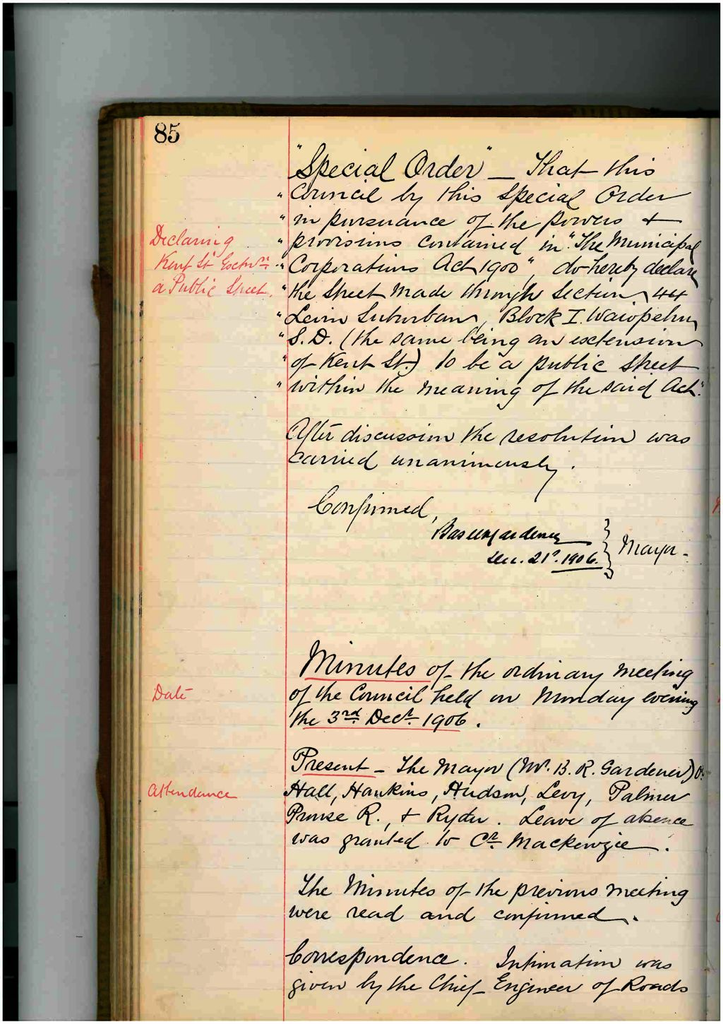 85
"Special Order" — That this
"Council by this Special Order
"in pursuance of the powers &
"provisions contained in "The Municipal
"Corporations Act 1900", do hereby declare
"the Street made through Section 44
"Levin Suburban, Block I Waiopehu
"S.D. (the same being an extension
"of Kent St.) to be a public street
"within the meaning of the said Act".
Declaring
Kent St Extn.
a Public Street.
After discussion the resolution was
carried unanimously.
Confirmed,
Gardener
Dec. 21st. 1906. } Mayor.
Minutes of the ordinary meeting
of the Council held on Monday evening
the 3rd Decr. 1906.
Date
Present — The Mayor (Mr. B. R. Gardener)
Hall, Hankins, Hudson, Levy, Palmer
Prouse R., & Ryder. Leave of absence
was granted to Cr. Mackenzie.
Attendance
The Minutes of the previous meeting
were read and confirmed.
Correspondence. Intimation was
given by the Chief Engineer of Roads